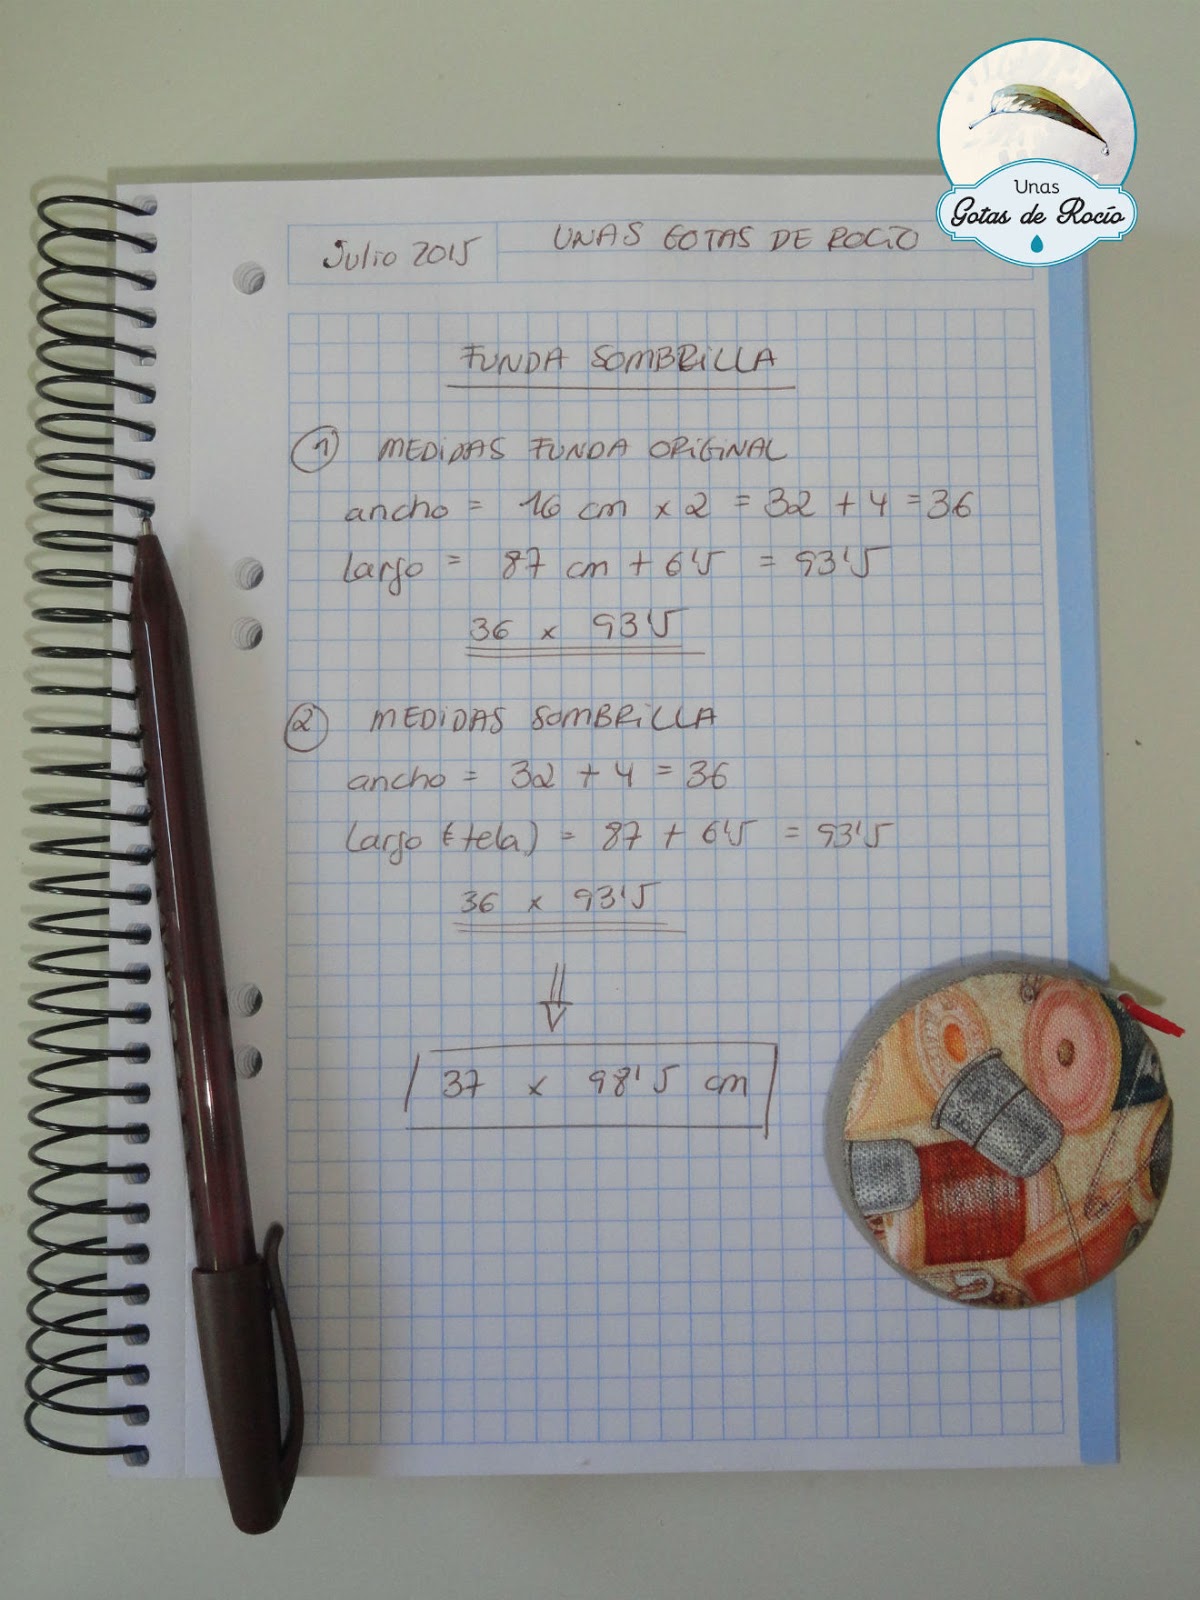 Unas
Gotas de Rocío
Julio 2015
UNAS GOTAS DE ROCIO
FUNDA SOMBRILLA
1 MEDIDAS FUNDA ORIGINAL
ancho = 16 cm x 2 = 32 + 4 = 36
largo = 87 cm + 6'5 = 93'5
36 x 93'5
2 MEDIDAS SOMBRILLA
ancho = 32 + 4 = 36
largo (tela) = 87 + 6'5 = 93'5
36 x 93'5
37 x 98'5 cm